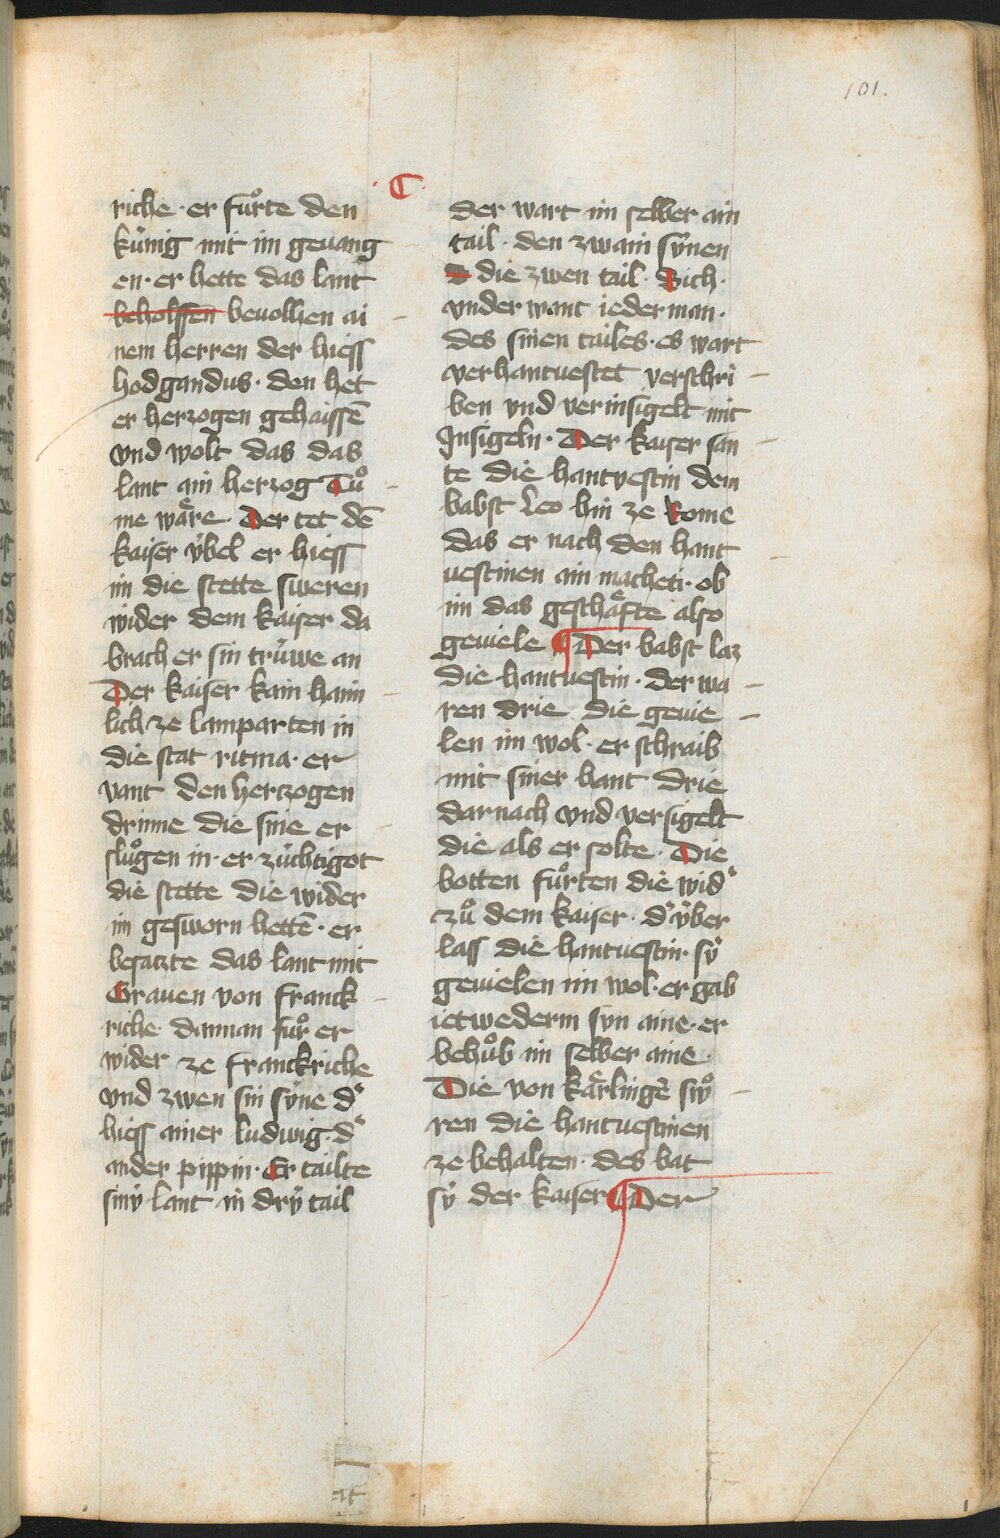 101.
C
riche · er fuͦrte den
kúnig mit im geuang
en · er hette das lant
beholffen beuolhen ai
nem herren der hiess
hodgandus · den het
er herzogen gehaissē
vnd wolt das das
lant ain herzog Tuͦ
me wäre · Der tet dē
kaiser v́bel er hiess
im die stette sweren
wider dem kaiser da
brach er sin trúwe an
Der kaiser kam haim
lich ze lamparten in
die stat ritma · er
vant den hertzogen
drinne die sine er
sluͦgen in · er zúchtigot
die stette die wider
im gesworn hettē · er
besatzte das lant mit
Grauen von franck
riche · dannan fuͦr er
wider ze franckriche
vnd zwen sin sv́ne d'
hiess ainer ludwig · d'
ander pippin · Er tailte
sinv́ lant in drv́ tail
der wart im selber ain
tail · den zwain sv́nen
die zwen tail · Sich
vnder want ieder man ·
des sinen tailes · es wart
verhantuestet verschri
ben vnd verinsigelt mit
Insigeln · Der kaiser san
te die hantvestin dem
babst Leo hin ze Rome
das er nach den hant
uestinen ain macheti · ob
im das geschäfte also
geuiele ¶ Der babst laz
die hantuestin · der wa
ren drie die geuie
len im wol · er schraib
mit siner hant drie
darnach vnd versigelt
die als er solte · Die
botten fuͦrten die wid'
zuͦ dem kaiser · d' v́ber
lass die hantuestin · sý
geuielen im wol · er gab
ietwederm syn aine · er
behuͦb im selber aine ·
Die von kärlingē swuͦ
ren die hantuestinen
ze behalten · des bat
sý der kaiser ¶ Der